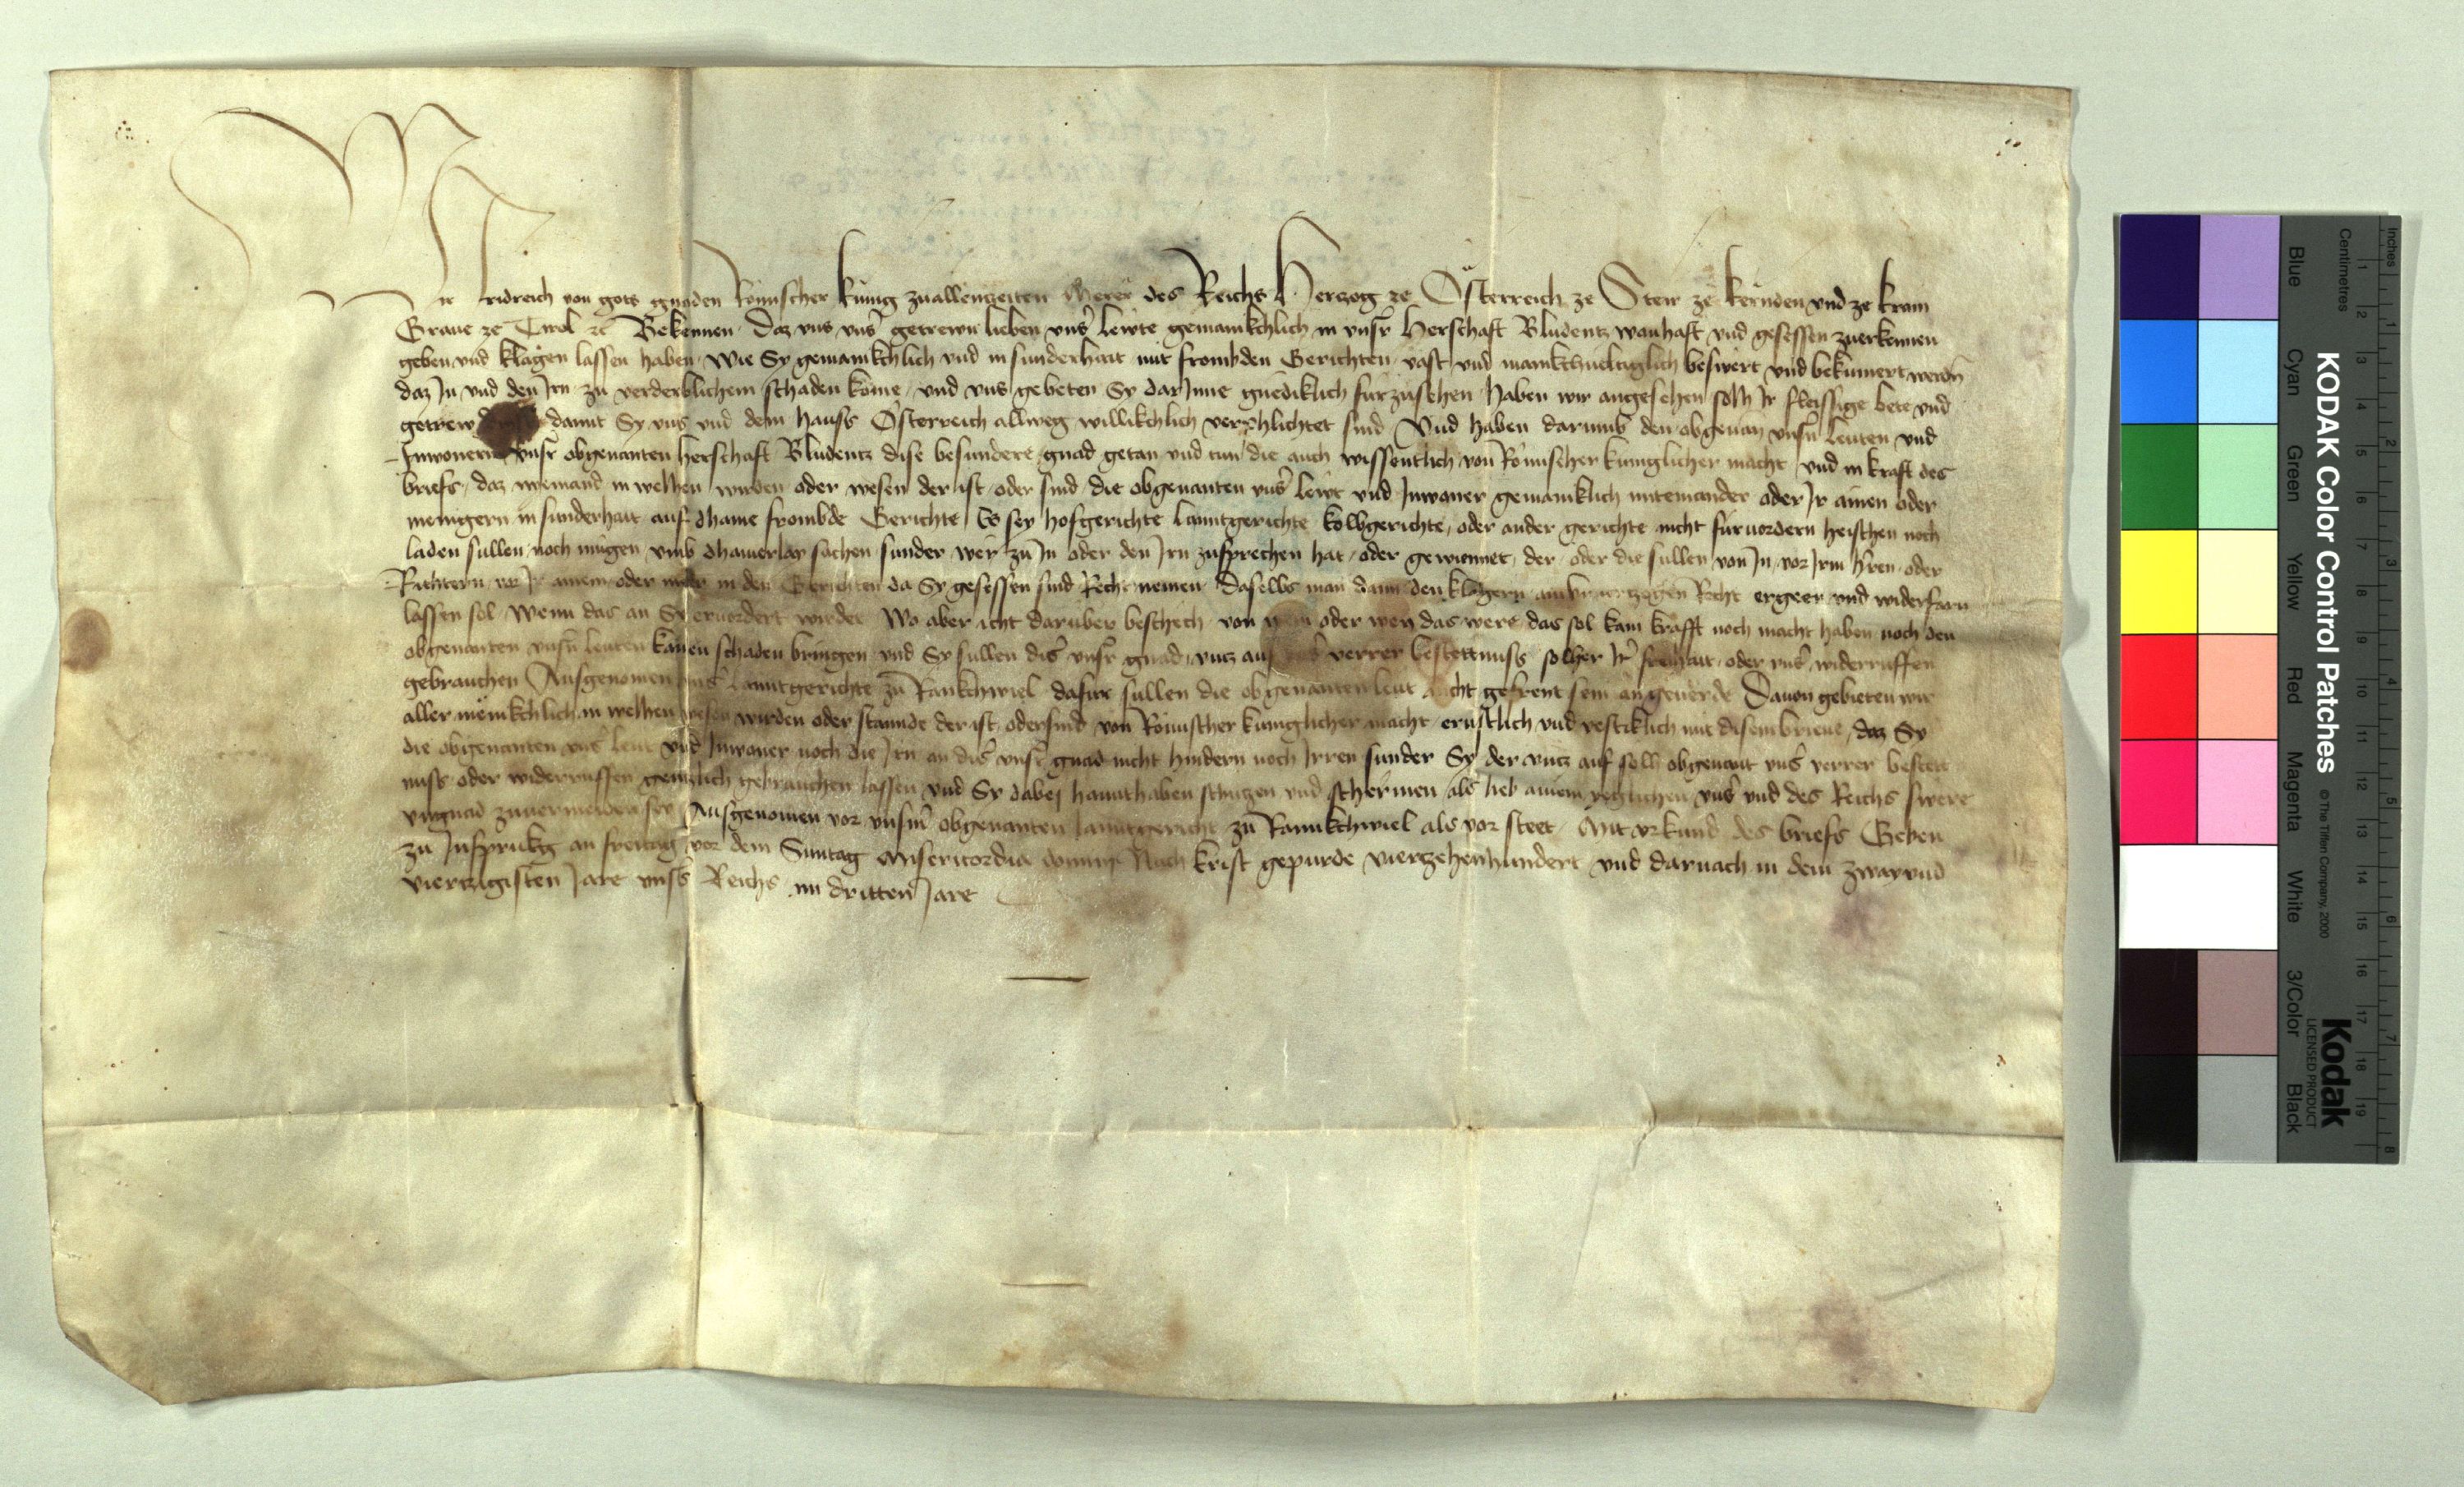 Wir Fridreich von gots gnaden Römischer kúnig zuallenczeiten Merer des Reichs Herczog ze Österreich ze Steir ze kernden vnd ze krain
Graue ze Tirol ꝛc Bekennen daz vns vnsʼ getrewn lieben vnsʼ lewte gemainkchlich in vnsrʼ Herschaft Bludentz wanhaft vnd gesessen zuerkennen
geben vnd klagen lassen haben Wie Sy gemainkchlich vnd in sunderhait mit frombden Gerichten vast vnd manikchueltiglich beswert vnd bekumert werdn̄
daz In vnd den Irn zu verderblichem schaden kome vnd vns gebeten Sy darInne gnediklich fürzusehen haben wir angesehen solh Ir fleissige bete vnd
getrew dinst damit Sy vns vnd dem hauss Österreich allweg willikchlich verphlichtet sind Vnd haben darumb den obgenan̄ vnsn̄ leuten vnd
Inwonern vnsrʼ obgenanten herschaft Bludentz dise besundere gnad getan vnd tun die auch wissentlich von Römischer kuniglicher macht vnd in kraft des
briefs, daz niemand in welhen wirden oder wesen der ist oder sind die obgenanten vnsʼ lewt vnd Inwoner gemainklich miteinander oder Ir ainen oder
menigern in sunderhait auf dhaine frombde Gerichte Es sey hofgerichte lanntgerichte kolbgerichte, oder ander gerichte nicht fürvordern heischen noch
laden sullen noch mugen vmb dhainerlay sachen sunder wer zu In oder den Irn zusprechen hat oder gewinnet, der oder die sullen von In vor Irn hʼren oder
Richtern vor Ir ainem oder mer in den Gerichten da Sy gesessen sind Recht nemen daselbs man dann den klagern ain vnuerczogen Recht ergeen vnd widerfarn
lassen sol Wenn das an Sy eruordert wirdet Wo aber icht darüber beschech von wem oder wen das were das sol kain krafft noch macht haben noch den
obgenanten vnsn̄ leuten kainen schaden bringen vnd Sy sullen disʼ vnsrʼ gnad vncz auf vnsʼ verrer bestettnuss solher Irʼ freihait oder vnsʼ widerruffen
gebrauchen Ausgenomen vnsʼ lanntgerichte zu Rankchwiel dafur sullen die obgenanten leut nicht gefreyt sein an geuerde Dauon gebieten wir
aller menikchlich in welhen wesen wirden oder stannde der ist oder sind von Römischer kuniglicher macht ernstlich vnd vestiklich mit disem brieue, daz Sy
die obgenanten vnsʼ leut vnd Inwoner noch die Irn an disʼ vnsrʼ gnad nicht hindern noch Irren sunder Sy der vncz auf solh obgenant vnsʼ verrer bestett
nuss oder widerruffen genczlich gebrauchen lassen vnd Sy dabej hannthaben schuczen vnd schermen als lieb ainem yeglichen vnsʼ vnd des Reichs swere
vngnad zuuermeiden sey Ausgenomen vor vnsm̄ obgenanten lanntgericht zu Rannkchwiel als vor steet Mit vrkund des briefs Geben
zu Insprukg an freitag vor dem Suntag Misericordia domini Nach krist gepurde vierczehenhundert vnd darnach in dem zway vnd
vierczigisten Jare vnsʼs Reichs im dritten Jare
KODAK Color Control Patches
© The Tiffen Company, 2000
Kodak
LICENSED PRODUCT
Blue Cyan Green Yellow Red Magenta White 3/Color Black
Inches 1 2 3 4 5 6 7 8
Centimetres 1 2 3 4 5 6 7 8 9 10 11 12 13 14 15 16 17 18 19